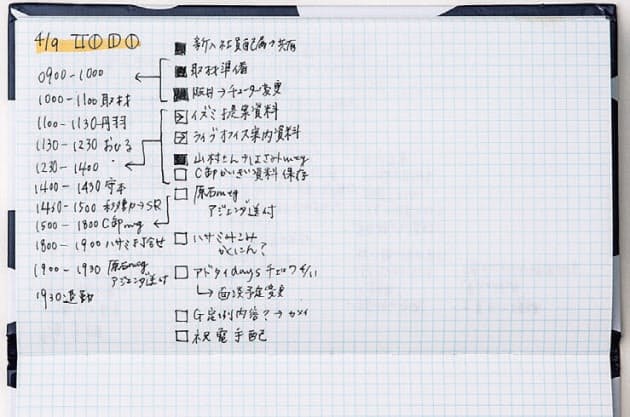 4/9 TODO
0900-1000
1000-1100 取材
1100-1130 丹羽
1130-1230 おひる
1230-1400
1400-1430 守本
1430-1500 移動→SR
1500-1800 C卸mtg
1800-1900 ハサミ打合せ
1900-1930 原石mtg
アジェンダ送付
1930 退勤
新入社員配属→共有
取材準備
阪井→チューター変更
イズミ提案資料
ライブオフィス案内資料
山村さんすはさみmtg
C卸かいぎ資料保存
原石mtg
アジェンダ送付
ハサミ
かくにん?
アドタイdaysチェック
↳面談予定変更
G定例内容?→
祝電手配